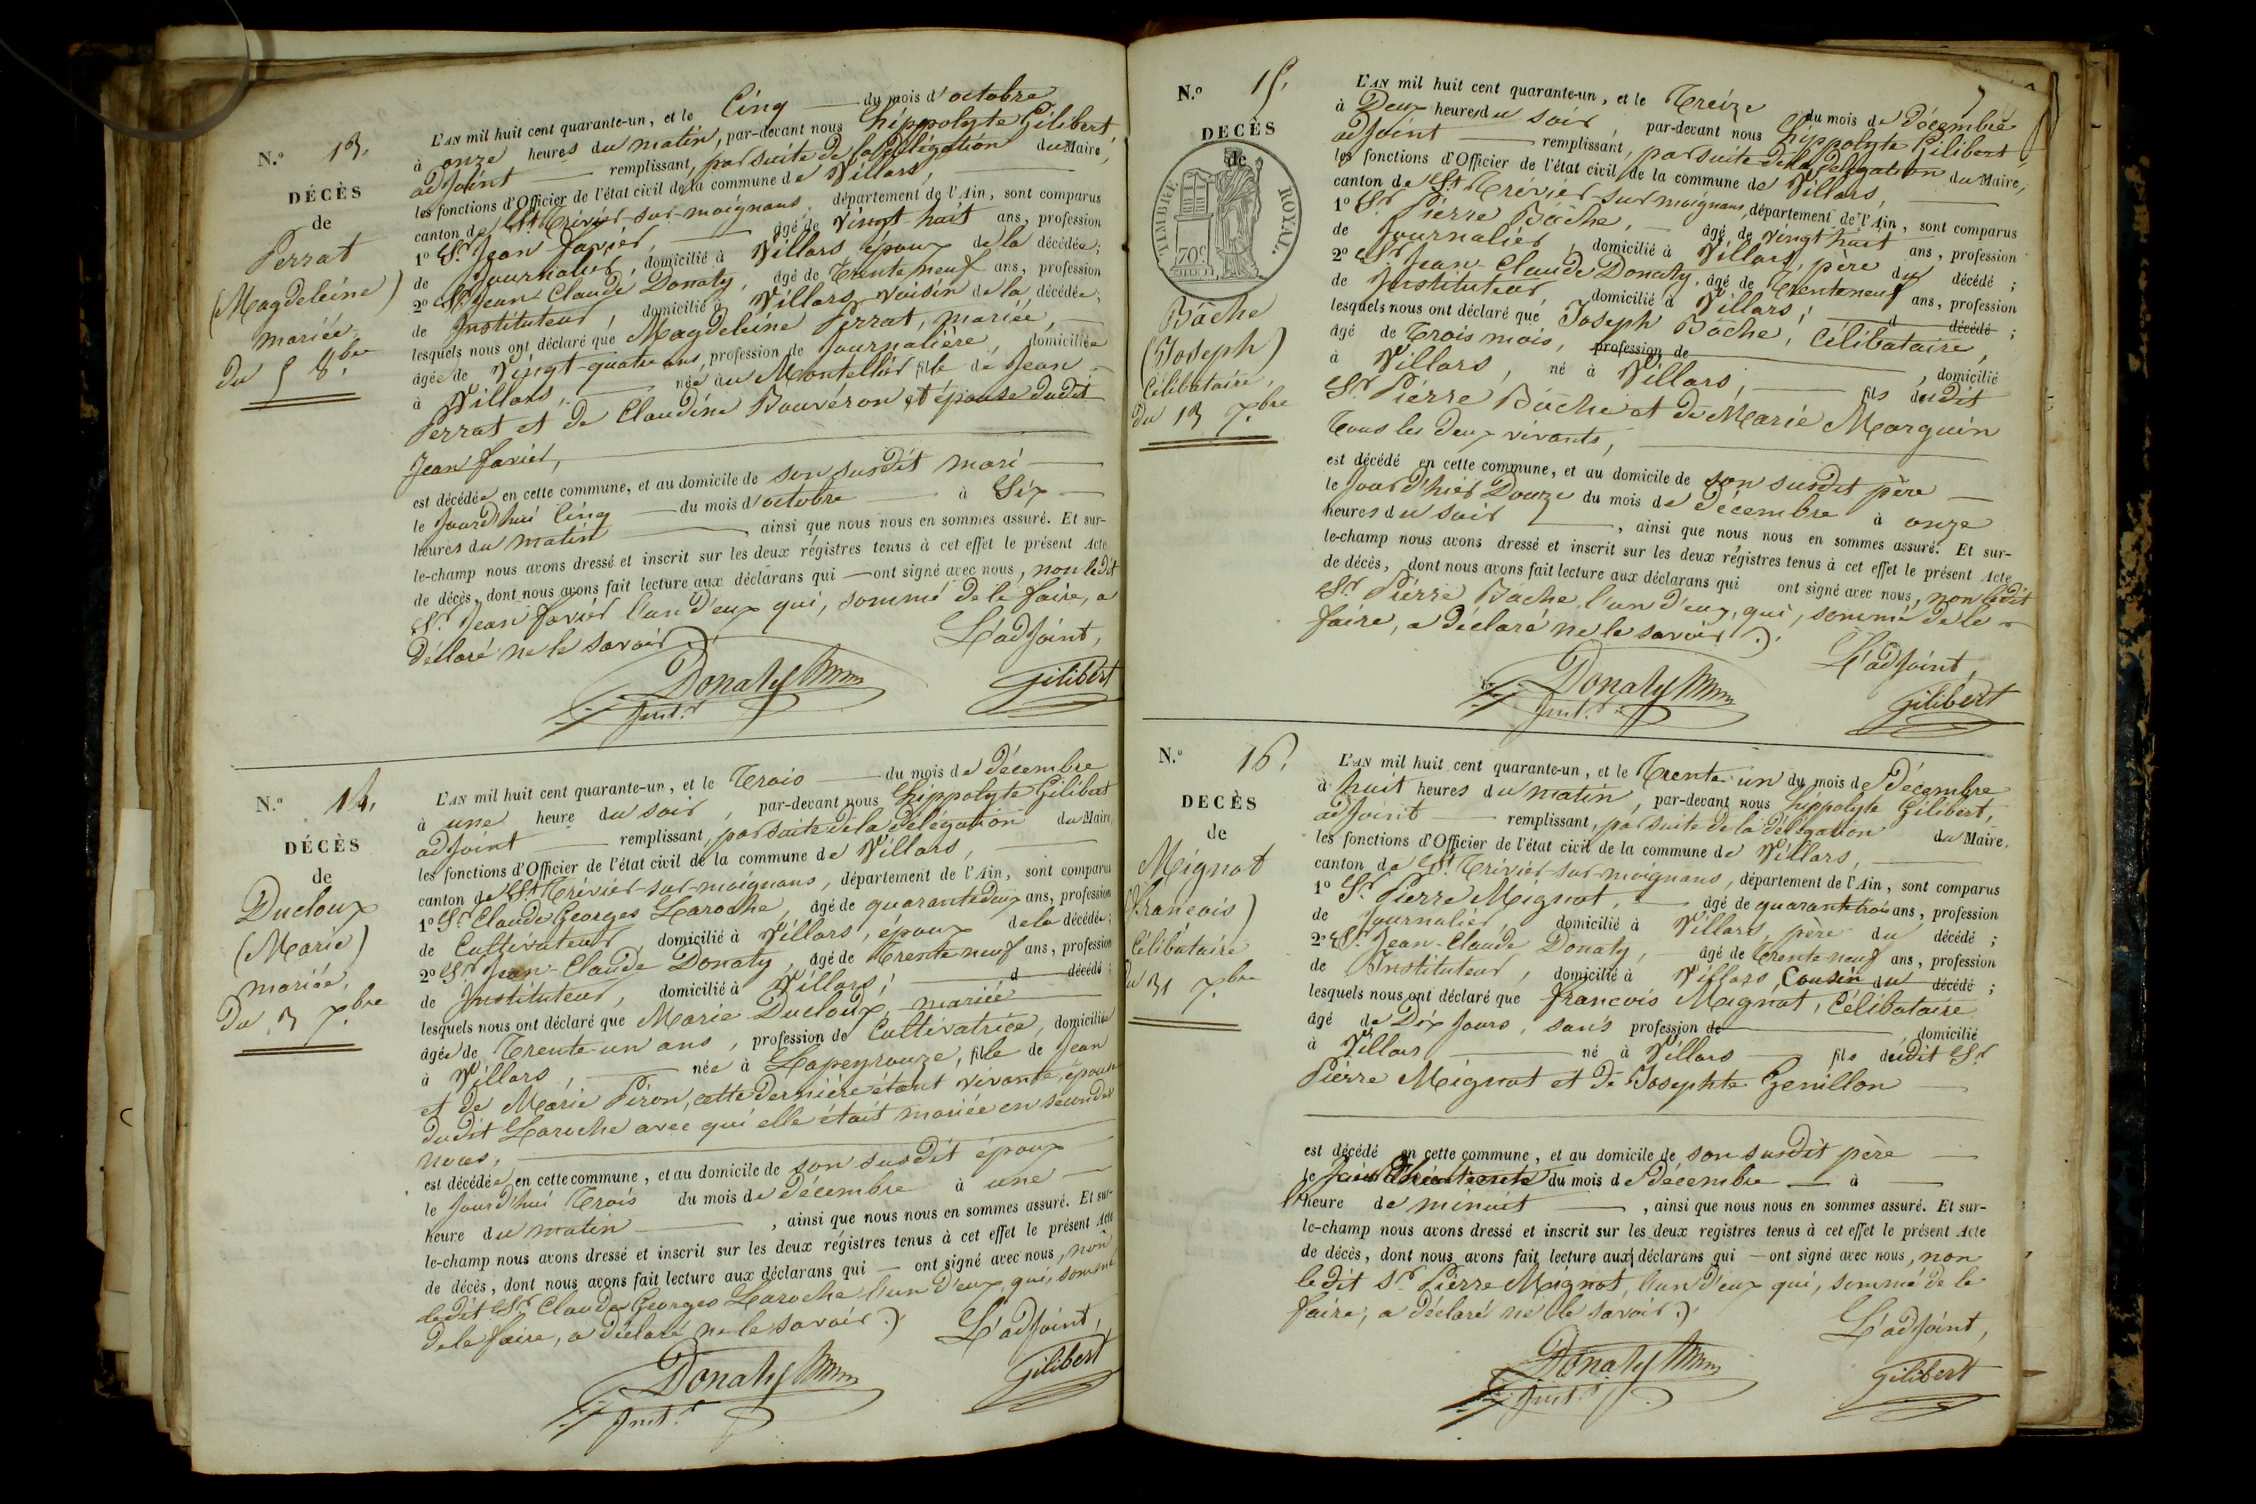 N.o 13.
DÉCÈS
de
Perrat
(Magdeleine)
mariée
du 5 8.bre
L'AN mil huit cent quarante-un, et le Cinq du mois d'octobre
à onze heures du matin, par-devant nous hippolyte Gilibert,
adjoint remplissant, par suite de la délégation du Maire,
les fonctions d'Officier de l'état civil de la commune de Villars,
canton de St Trivier-sur-moignans, département de l'Ain, sont comparus
1o Sr. Jean Favier, âgé de vingt huit ans, profession
de Journalier, domicilié à Villars époux de la décédée;
2o Sr. Jean-Claude Donaty, âgé de Trente neuf ans, profession
de Instituteur, domicilié à Villars, Voisin de la décédée;
lesquels nous ont déclaré que Magdeleine Perrat, mariée,
âgée de Vingt-quatre ans, profession de Journalière, domiciliée
à Villars, née au Montellier fille de Jean
Perrat et de Claudine Bouvéron et épouse dudit
Jean Favier,
est décédée en cette commune, et au domicile de son susdit mari
le Jourd'hui Cinq du mois d'octobre à Six
heures du matin ainsi que nous nous en sommes assuré. Et sur-
le-champ nous avons dressé et inscrit sur les deux régistres tenus à cet effet le présent Acte
de décès, dont nous avons fait lecture aux déclarans qui ont signé avec nous, non ledit
Sr. Jean Favier l'un d'eux qui, sommé de le faire, a
déclaré ne le savoir.
L'adjoint,
Donaty
Inst.r
Gilibert
N.o 14.
DÉCÈS
de
Ducloux
(Marie)
mariée,
Du 3 x.bre
L'AN mil huit cent quarante-un, et le Trois du mois de décembre
à une heure du soir, par-devant nous hippolyte Gilibert
adjoint remplissant, par suite de la délégation du Maire,
les fonctions d'Officier de l'état civil de la commune de Villars,
canton de St. Trivier-sur-moignans, département de l'Ain, sont comparus
1o Sr Claude Georges Laroche, âgé de quarante deux ans, profession
de Cultivateur domicilié à Villars, époux de la décédée;
2o Sr Jean-Claude Donaty, âgé de Trente neuf ans, profession
de Instituteur, domicilié à Villars; d décédé;
lesquels nous ont déclaré que Marie Ducloux, mariée
âgée de Trente-un ans, profession de Cultivatrice, domiciliée
à Villars, née à Lapeyrouze, fille de Jean
et de Marie Piron, cette dernière étant vivante, épouse
dudit Laroche avec qui elle était mariée en secondes
noces,
est décédée en cette commune, et au domicile de son susdit époux
le Jourd'hui Trois du mois de décembre à une
heure du matin, ainsi que nous nous en sommes assuré. Et sur-
le-champ nous avons dressé et inscrit sur les deux régistres tenus à cet effet le présent Acte
de décès, dont nous avons fait lecture aux déclarans qui ont signé avec nous, non
ledit Sr. Claude Georges Laroche l'un d'eux qui, sommé
de le faire, a déclaré ne le savoir.
L'adjoint,
Donaty
Inst.r
Gilibert
N.o 15.
DECÈS
de
TIMBRE ROYAL.
70c
Bâche
(Joseph)
Célibataire,
Du 13 x.bre
L'AN mil huit cent quarante-un, et le Treize du mois de décembre
à Deux heures du soir, par-devant nous hippolyte Gilibert
adjoint remplissant, par suite de la délégation du Maire,
les fonctions d'Officier de l'état civil de la commune de Villars,
canton de St Trivier-sur moignans, département de l'Ain, sont comparus
1o Sr. Pierre Bâche, âgé de vingt huit ans, profession
de Journalier, domicilié à Villars, père du décédé;
2o Sr Jean-Claude Donaty, âgé de Trente neuf ans, profession
de Instituteur, domicilié à Villars; d décédé;
lesquels nous ont déclaré que Joseph Bâche, Célibataire,
âgé de Trois mois, profession de, domicilié
à Villars, né à Villars, fils dudit
Sr. Pierre Bâche et de Marie Marguin
Tous les deux vivants,
est décédé en cette commune, et au domicile de son susdit père
le Jour d'hier Douze du mois de décembre à onze
heures du soir, ainsi que nous nous en sommes assuré. Et sur-
le-champ nous avons dressé et inscrit sur les deux régistres tenus à cet effet le présent Acte
de décès, dont nous avons fait lecture aux déclarans qui ont signé avec nous, non ledit
Sr. Pierre Bâche l'un d'eux, qui, sommé de le
faire, a déclaré ne le savoir.
L'adjoint,
Donaty
Inst.r
Gilibert
N.o 16.
DECÈS
de
Mignat
(francois)
Célibataire
du 31 x.bre
L'AN mil huit cent quarante-un, et le Trente-un du mois de décembre
à huit heures du matin, par-devant nous hippolyte Gilibert,
adjoint remplissant, par suite de la délégation du Maire,
les fonctions d'Officier de l'état civil de la commune de Villars,
canton de St. Trivier-sur-moignans, département de l'Ain, sont comparus
1o Sr. Pierre Mignat, âgé de quarante trois ans, profession
de Journalier, domicilié à Villars, père du décédé;
2o Sr. Jean-Claude Donaty, âgé de Trente-neuf ans, profession
de Instituteur, domicilié à Villars, Cousin du décédé;
lesquels nous ont déclaré que francois Mignat, Célibataire
âgé de Dix Jours, sans profession de domicilié
à Villars né à Villars fils dudit Sr
Pierre Mignat et de Josephte Genillon
est décédé en cette commune, et au domicile de son susdit père
le du mois de décembre à
heure de minuit, ainsi que nous nous en sommes assuré. Et sur-
le-champ nous avons dressé et inscrit sur les deux registres tenus à cet effet le présent Acte
de décès, dont nous avons fait lecture aux déclarans qui ont signé avec nous, non
ledit Sr. Pierre Mignat, l'un d'eux qui, sommé de le
faire, a déclaré ne le savoir.
L'adjoint,
Donaty
Inst.r
Gilibert